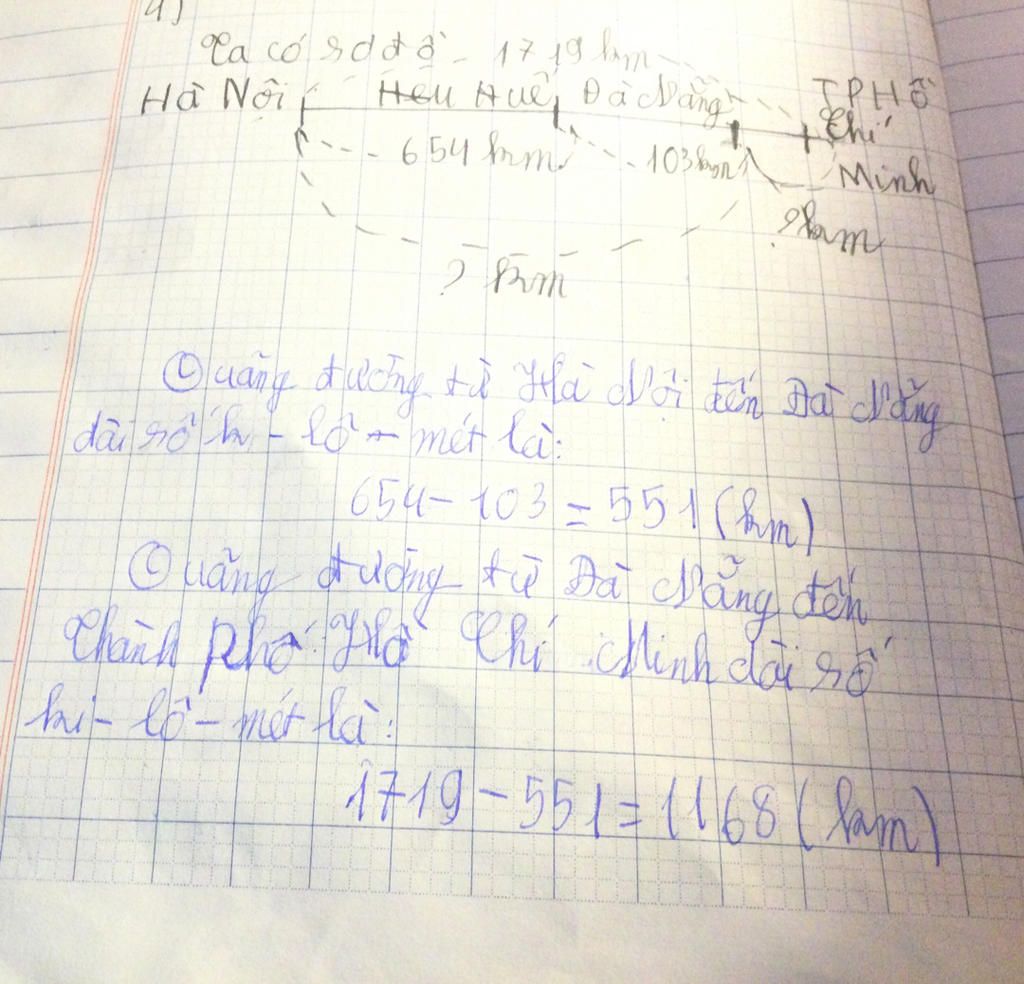 4)
Ta có sơ đồ 1719 km
Hà Nội Huế Đà Nẵng TP HỒ
Chí
654 km 103 km Minh
? km
? km
Quãng đường từ Hà Nội đến Đà Nẵng
dài số ki-lô-mét là:
654-103=551(km)
Quãng đường từ Đà Nẵng đến
Thành phố Hồ Chí Minh dài số
ki-lô-mét là:
1719-551=1168(km)